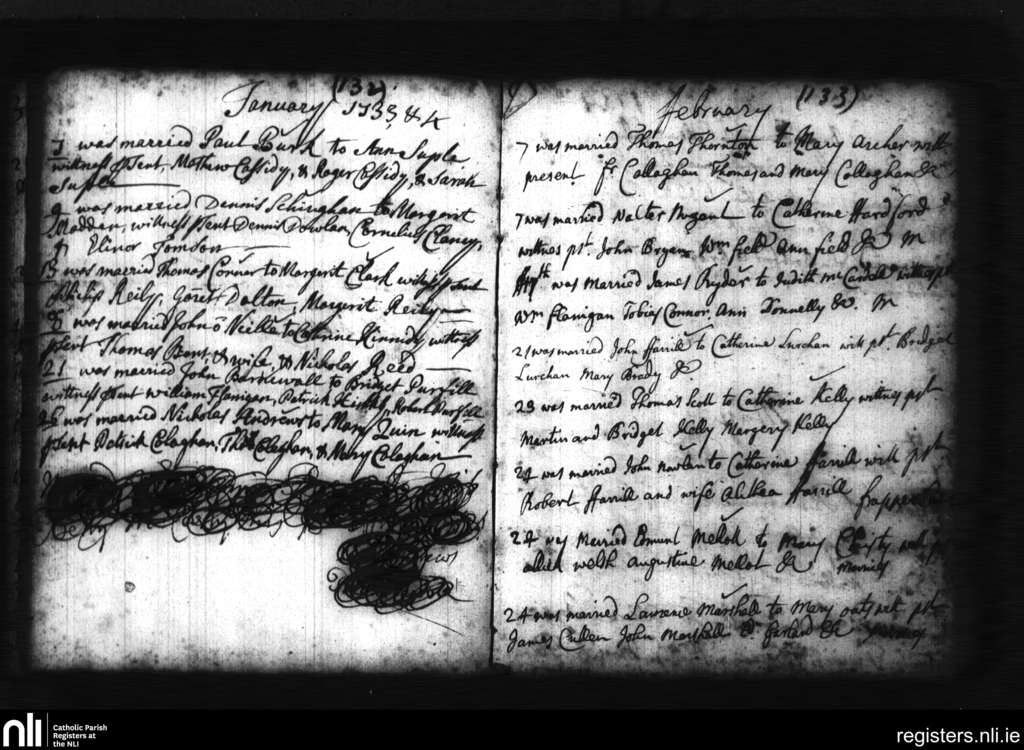 (132)
January 1733, & 4
7 was married Paul Burk to Ann Suple
wittness psent, Mathew Cassidy, & Roger Cassidy, & Sarah
Suple
9 was married Dennis to Margerit
Madden, wittness psent Dennis Dowlan, Cornelius Clancy,
& Elinor Tomson
13 was maried Thomas Connor to Margerit Clark witness psent
philip Reily, Garet Dalton, Margerit Reily
8 was married John o Neille to Catrine Kinnedy wittness
psent Thomas Bent, & wife, & Nicholas Reed
21 was married John Barnewall to Bridget Pursill
wittness psent William Flanigan, Patrick Robert Pursill
26 was married Nicholas Andrews to Mary Quin wittness
psent Patrick Calaghan, Tho Calaghan, & Mary Calaghan
(133)
february
7 was married Thomas Thornton to Mary Archer with
present fr Callaghan Thomas and Mary Callaghan &c
7 was married Walter Nugant to Catherine Hardford
witnes pst. John Bryen Wm field Ann field &c M
was married James Ryder to Judith witnes pst
Wm Flanigan Tobias Connor, Ann Donnelly &c. M
21 was married John ffarrill to Catherine Lurchan with pst. Bridget
Lurchan Mary Brady &c.
23 was married Thomas Scott to Catharine Kelly witness pst
Martin and Bridget Kelly Margery Kelly
24 was married John Nowlan to Catharine ffarrill with pst
Robert ffarrill and wife Alithea ffarrill
24 was Married Edmund Mellot to Mary Christy with
Alice welsh Augustine Mellot &c
24 was married Lawrence Marshall to Mary with pst
James Cullen John Marshall Garland &c
nli
Catholic Parish
Registers at
the NLI
registers.nli.ie